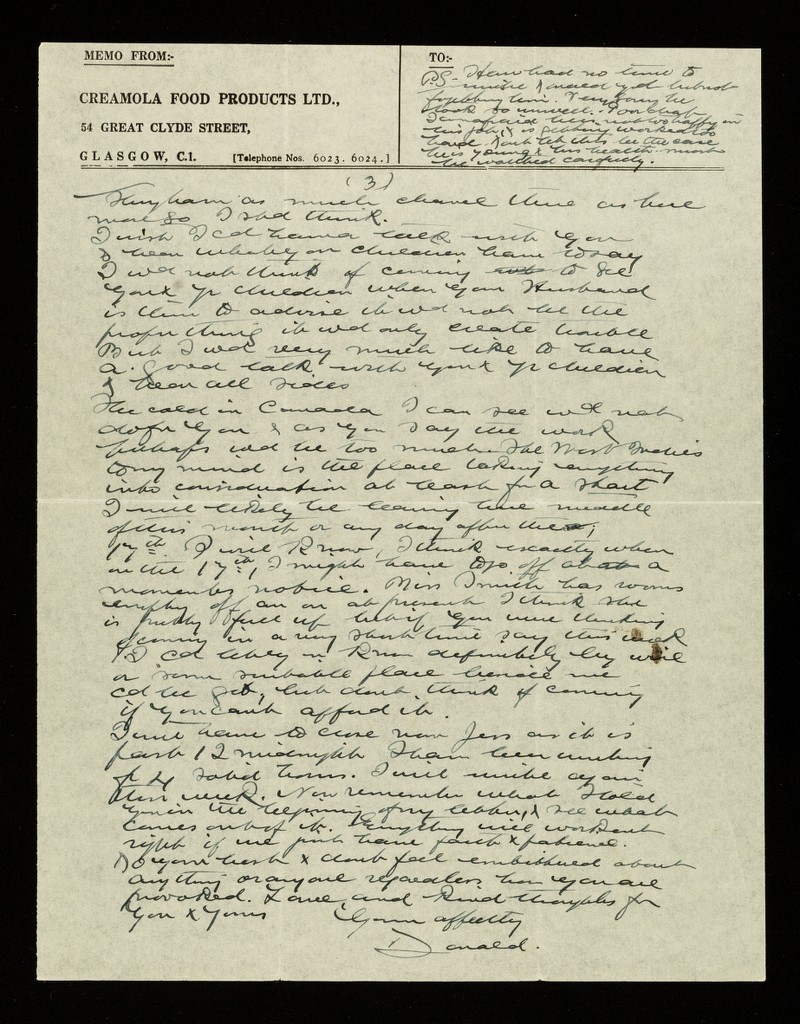 MEMO FROM:-
CREAMOLA FOOD PRODUCTS LTD.,
54 GREAT CLYDE STREET,
GLASGOW, C.1. [Telephone Nos. 6023. 6024.]
TO:-
P.S. Have had no time to
write
him. Very sorry he
look so unwell. Poor chap
I am afraid he is not too happy in
his job, & is getting worked too
hard. Don't let this be the case
he is young & his health must
be watched carefully.
(3)
as much chance there as here
more so I shd think.
I wish I cd have a talk with you
& hear what your children have to say
I wd not think of coming to see
you & yr children when your Husband
is there to advise it wd not be the
proper thing it wd only create trouble
But I wd very much like to have
a good talk with you & yr children
& hear all sides
The cold in Canada I can see will not
do for you & as you say the work
perhaps wd be too much. The West Indies
to my mind is the place taking everything
into consideration at least for a start
I will likely be leaving here middle
of this month or any day after the
17th. I will know, I think exactly when
on the 17th, I might have to go off at a
moments notice. Miss Smith has rooms
empty off an on at present I think she
is pretty full up but if you were thinking
of coming in a very short time say this week
I cd let you know definitely by wire
or some suitable place beside me
cd be got, but dont think of coming
if you cant afford it.
I will have to close now Jess as it is
past 12 midnight I have been writing
for 4 solid hours. I will write again
this week. Now remember what I told
you in the beginning of my letter, & see what
comes out of it. Everything will work out
right if we just have faith & patience.
Do your best & dont feel embittered about
anything or anyone regardless how you are
provoked. Love and kind thoughts for
you & yours Yours affectly
Donald.